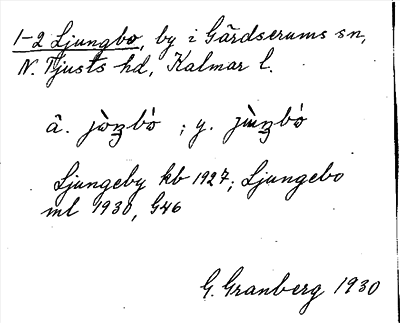 1-2 Ljungbo, by i Gärdserums sn,
N. Tjusts hd, Kalmar l.
ä. jòŋbò ; y. jùŋbò
Ljungeby kb 1927; Ljungebo
ml 1930, G46
G. Granberg 1930